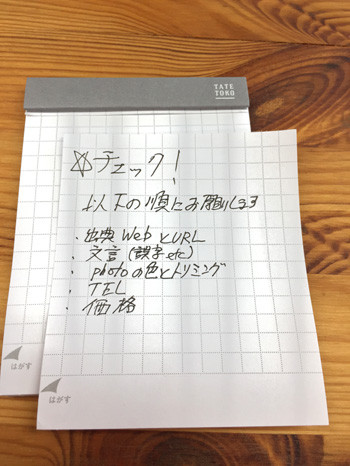 TATE
TOKO
☆チェック!
以下の順にお願いします
・出典WebとURL
・文言(誤字etc)
・photoの色とトリミング
・TEL
・価格
はがす
はがす